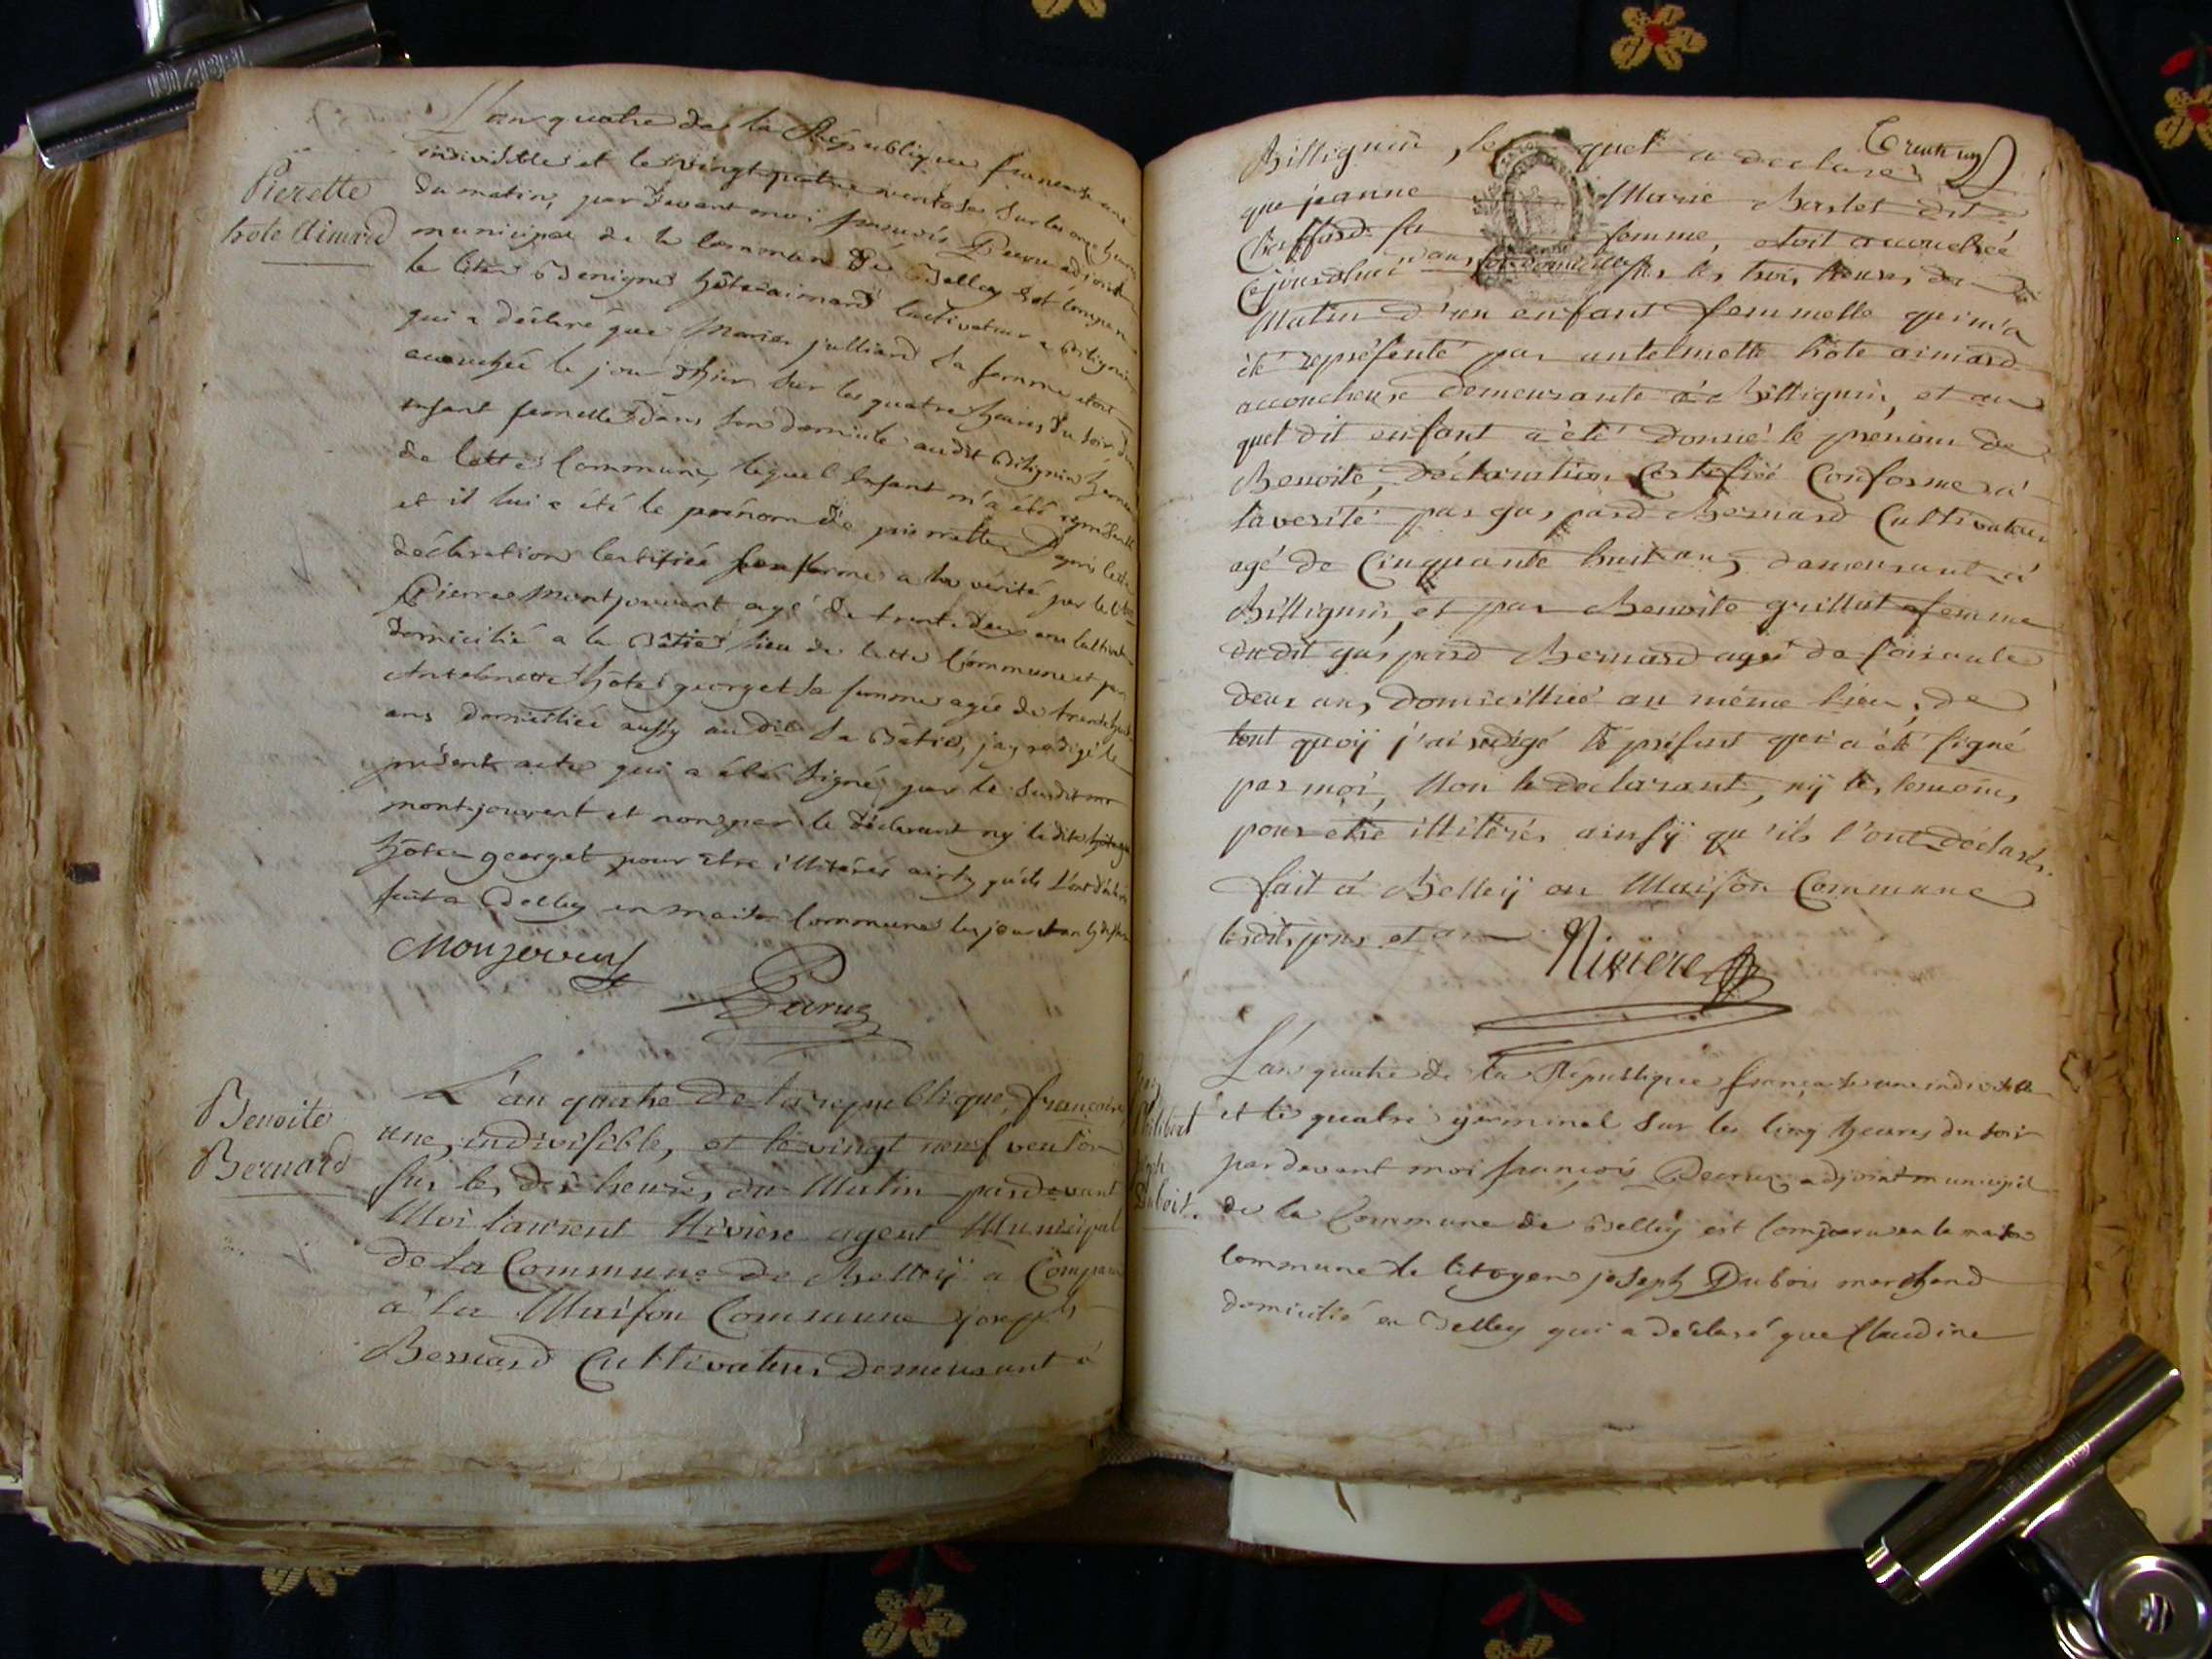 L'an quatre de la République francaise une
indivisible et le vingt quatre ventose sur les onze heures
du matin, par devant moi francois Decruz adjoint
municipal de la Commune de Belley est comparu
le citn Benigne hôte aimard cultivateur a Billignin
qui a déclaré que Marie julliard sa femme etoit
accouchée le jour d'hier sur les quatre heures du soir d'un
enfant femelle dans son domicile audit Billignin
de cette Commune, lequel Enfant m'a été représenté
et il lui a été le prénom de pierrette D'après cette
déclaration Certifiée Conforme a la vérité par le Citn
Pierre Montjouvent agé de trente deux ans cultivateur
domicilié a la Bâtie lieu de cette Commune et par
Antelmette hôte georget sa femme agée de trente huit
ans domiciliée aussy au dit la Bâtie, j'ay redigé le
présent acte qui a été signé par le susdit
montjouvent et non par le déclarant ny ladite hôte
hôte georget pour etre illiterés ainsy qu'ils l'ont déclaré
fait a Belley en maison Commune les jour et an
Pierette
hote Aimard
Monjouvent
Decruz
Benoite
Bernard
L'an quatre de la republique francaise,
une, indivisible, et le vingt neuf ventose
sur les dix heures du Matin pardevant
Moi laurent Riviere agent Municipal
de la Commune de Belleÿ a Comparu
a la Maison Commune joseph
Bernard Cultivateur demeurant à
Trente un
Billignin, lequel a declaré
que jeanne Marie Bastet dit
Chiffard sa femme, etoit accouchée
Cejourdhui dans son domicille sur les trois heures du
Matin d'un enfant femmelle qui m'a
été représenté par antelmette hôte aimard
accoucheuse demeurante à Billignin, et au
quel dit enfant a été donné le prénom de
Benoite, Déclaration Certifiée Conforme a
la verité par gaspard Bernard Cultivateur
agé de Cinquante huit ans demeurant à
Billignin, et par Benoite grillet femme
du dit gaspard Bernard agé de soixante
deux ans, domicilliée au même lieu, de
tout quoÿ j'ai redigé le présent qui a été signé
par moi, Non le declarant, nÿ les temoins,
pour etre illitérés ainsÿ qu'ils l'ont déclaré.
fait à Belleÿ en Maison Commune
lesdits jour et an
Riviere
L'an quatre de la République française une indivisible
et le quatre germinal sur les cinq heures du soir
par devant moi françois Decruz adjoint municipal
de la Commune de Belley est comparu en la maison
Commune le Citoyen joseph Dubois marchand
domicilié en Belley qui a déclaré que Claudine